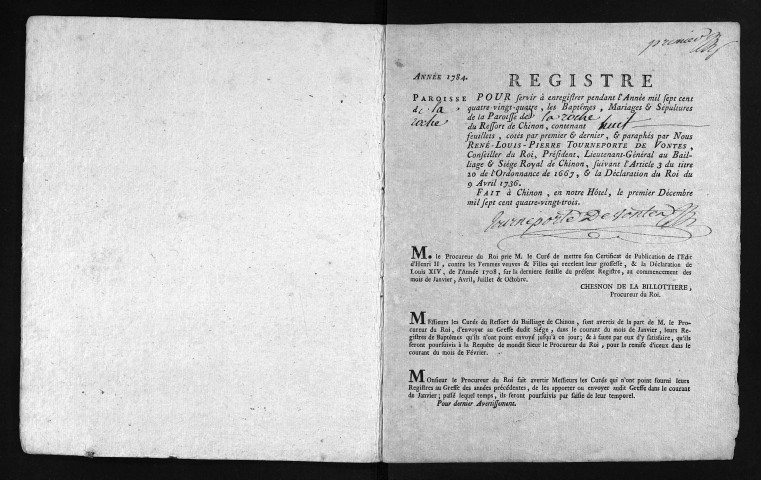 premier
ANNÉE 1784.
REGISTRE
PAROISSE
de la
roche
POUR servir à enregistrer pendant l'Année mil sept cent
quatre-vingt-quatre, les Baptêmes, Mariages & Sépultures
de la Paroisse de la roche
du Ressort de Chinon, contenant huit
feuillets, cotés par premier & dernier, & paraphés par Nous
RENÉ-LOUIS-PIERRE TOURNEPORTE DE VONTES,
Conseiller du Roi, Président, Lieutenant-Général au Bail-
liage & Siége Royal de Chinon, suivant l'Article 3 du titre
20 de l'Ordonnance de 1667, & la Déclaration du Roi du
9 Avril 1736.
FAIT à Chinon, en notre Hôtel, le premier Décembre
mil sept cent quatre-vingt-trois.
Tourneporte De Vontes
M. le Procureur du Roi prie M. le Curé de mettre son Certificat de Publication de l'Edit
d'Henri II, contre les Femmes veuves & Filles qui recelent leur grossesse, & la Déclaration de
Louis XIV, de l'Année 1708, sur la derniere feuille du présent Registre, au commencement des
mois de Janvier, Avril, Juillet & Octobre.
CHESNON DE LA BILLOTTIERE,
Procureur du Roi.
MEssieurs les Curés du Ressort du Bailliage de Chinon, sont avertis de la part de M. le Pro-
cureur du Roi, d'envoyer au Greffe dudit Siége, dans le courant du mois de Janvier, leurs Re-
gistres de Baptêmes qu'ils n'ont point envoyé jusqu'à ce jour; & à faute par eux d'y satisfaire, qu'ils
seront poursuivis à la Requête de mondit Sieur le Procureur du Roi, pour la remise d'iceux dans le
courant du mois de Février.
MOnsieur le Procureur du Roi fait avertir Messieurs les Curés qui n'ont point fourni leurs
Registres au Greffe des années précédentes, de les apporter ou envoyer audit Greffe dans le courant
de Janvier; passé lequel temps, ils seront poursuivis par saisie de leur temporel.
Pour dernier Avertissement.